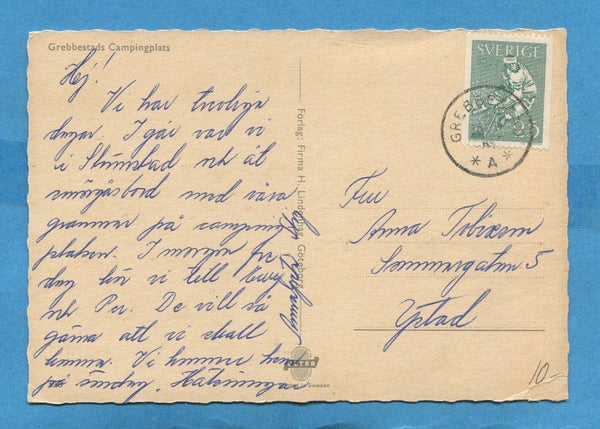 Grebbestads Campingplats
Hej!
Vi har trevliga
dagar. I går var vi
i Strömstad och åt
smörgåsbord med våra
grannar på camping
platsen. I morgon fre
dag kör vi till
och Per. De vill så
gärna att vi skall
komma. Vi kommer hem
på söndag. Hälsningar
Förlag: Firma H. Lindenhag, Göteborg
SVERIGE
GREBBESTAD
* A *
Fru
Anna
Sommargatan 5
Ystad
ULTRA
Sweden
10-